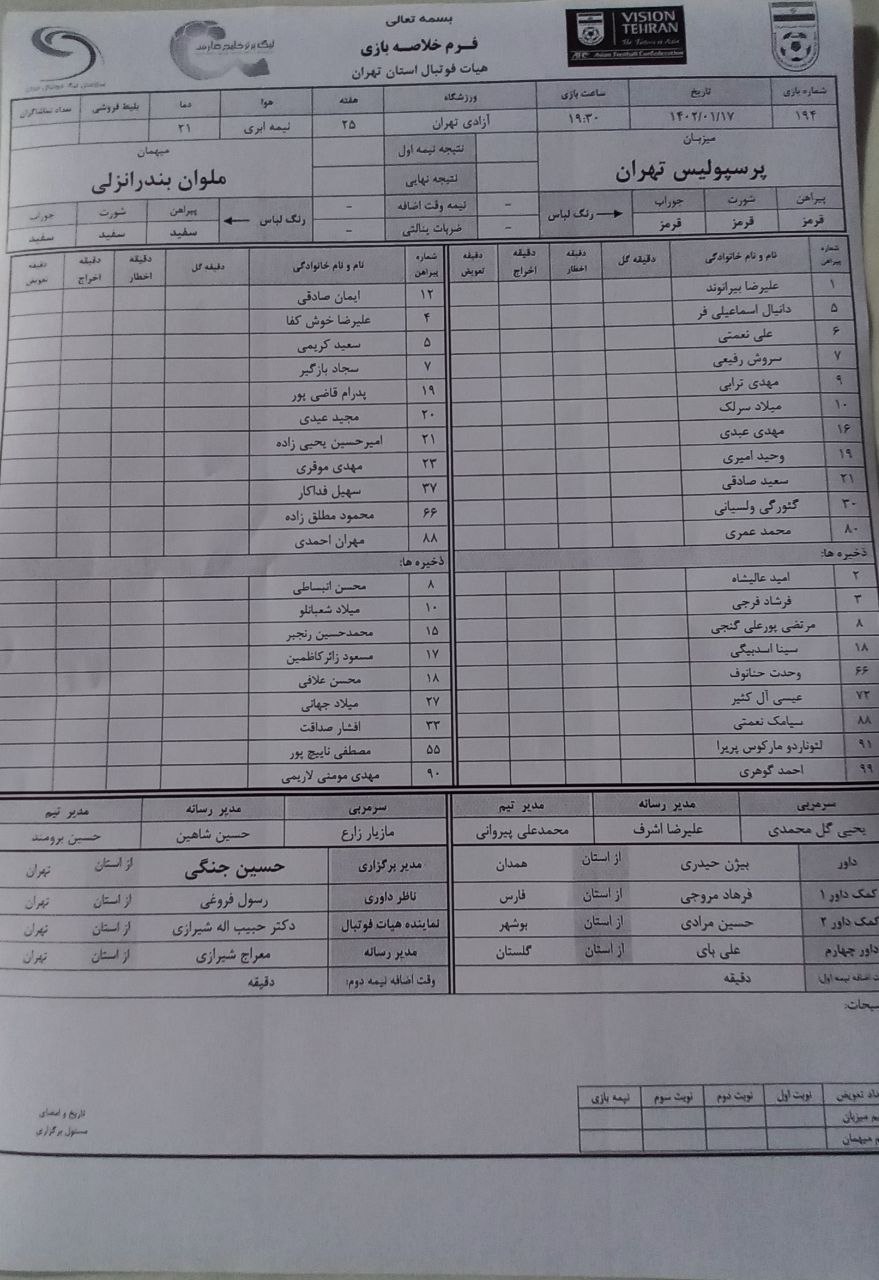 بسمه تعالی
فرم خلاصه بازی
هیات فوتبال استان تهران
VISION
TEHRAN
The Future is Asia
AFC Asian Football Confederation
لیگ برتر خلیج فارس
شماره بازی تاریخ ساعت بازی ورزشگاه هفته هوا دما بلیط فروشی تعداد تماشاگران
۱۹۴ ۱۴۰۲/۰۱/۱۷ ۱۹:۳۰ آزادی تهران ۲۵ نیمه ابری ۲۱
میزبان نتیجه نیمه اول میهمان
پرسپولیس تهران نتیجه نهایی ملوان بندرانزلی
پیراهن شورت جوراب رنگ لباس - نیمه وقت اضافه - رنگ لباس پیراهن شورت جوراب
قرمز قرمز قرمز - ضربات پنالتی - سفید سفید سفید
شماره پیراهن نام و نام خانوادگی دقیقه گل دقیقه اخطار دقیقه اخراج دقیقه تعویض شماره پیراهن نام و نام خانوادگی دقیقه گل دقیقه اخطار دقیقه اخراج دقیقه تعویض
۱ علیرضا بیرانوند ۱۲ ایمان صادقی
۵ دانیال اسماعیلی فر ۴ علیرضا خوش کفا
۶ علی نعمتی ۵ سعید کریمی
۷ سروش رفیعی ۷ سجاد بازگیر
۹ مهدی ترابی ۱۹ پدرام قاضی پور
۱۰ میلاد سرلک ۲۰ مجید عیدی
۱۶ مهدی عبدی ۲۱ امیرحسین یحیی زاده
۱۹ وحید امیری ۲۳ مهدی موقری
۲۱ سعید صادقی ۳۷ سهیل فداکار
۳۰ گئورگی ولسیانی ۶۶ محمود مطلق زاده
۸۰ محمد عمری ۸۸ مهران احمدی
ذخیره ها: ذخیره ها:
۲ امید عالیشاه ۸ محسن انبساطی
۳ فرشاد فرجی ۱۰ میلاد شعبانلو
۸ مرتضی پورعلی گنجی ۱۵ محمدحسین رنجبر
۱۸ سینا اسدبیگی ۱۷ مسعود زائرکاظمین
۶۶ وحدت حنانوف ۱۸ محسن علافی
۷۲ عیسی آل کثیر ۲۷ میلاد جهانی
۸۸ سیامک نعمتی ۳۳ افشار صداقت
۹۱ لئوناردو مارکوس پریرا ۵۵ مصطفی ناییج پور
۹۹ احمد گوهری ۹۰ مهدی مومنی لاریمی
سرمربی مدیر رسانه مدیر تیم سرمربی مدیر رسانه مدیر تیم
یحیی گل محمدی علیرضا اشرف محمدعلی پیروانی مازیار زارع حسین شاهین حسین برومند
داور بیژن حیدری از استان همدان مدیر برگزاری حسین جنگی از استان تهران
کمک داور ۱ فرهاد مروجی از استان فارس ناظر داوری رسول فروغی از استان تهران
کمک داور ۲ حسین مرادی از استان بوشهر نماینده هیات فوتبال دکتر حبیب اله شیرازی از استان تهران
داور چهارم علی بای از استان گلستان مدیر رسانه معراج شیرازی از استان تهران
ت اضافه نیمه اول: دقیقه وقت اضافه نیمه دوم: دقیقه
سیحات:
داد تعویض نوبت اول نوبت دوم نوبت سوم نیمه بازی
م میزبان
م میهمان
تاریخ و امضای
مسئول برگزاری